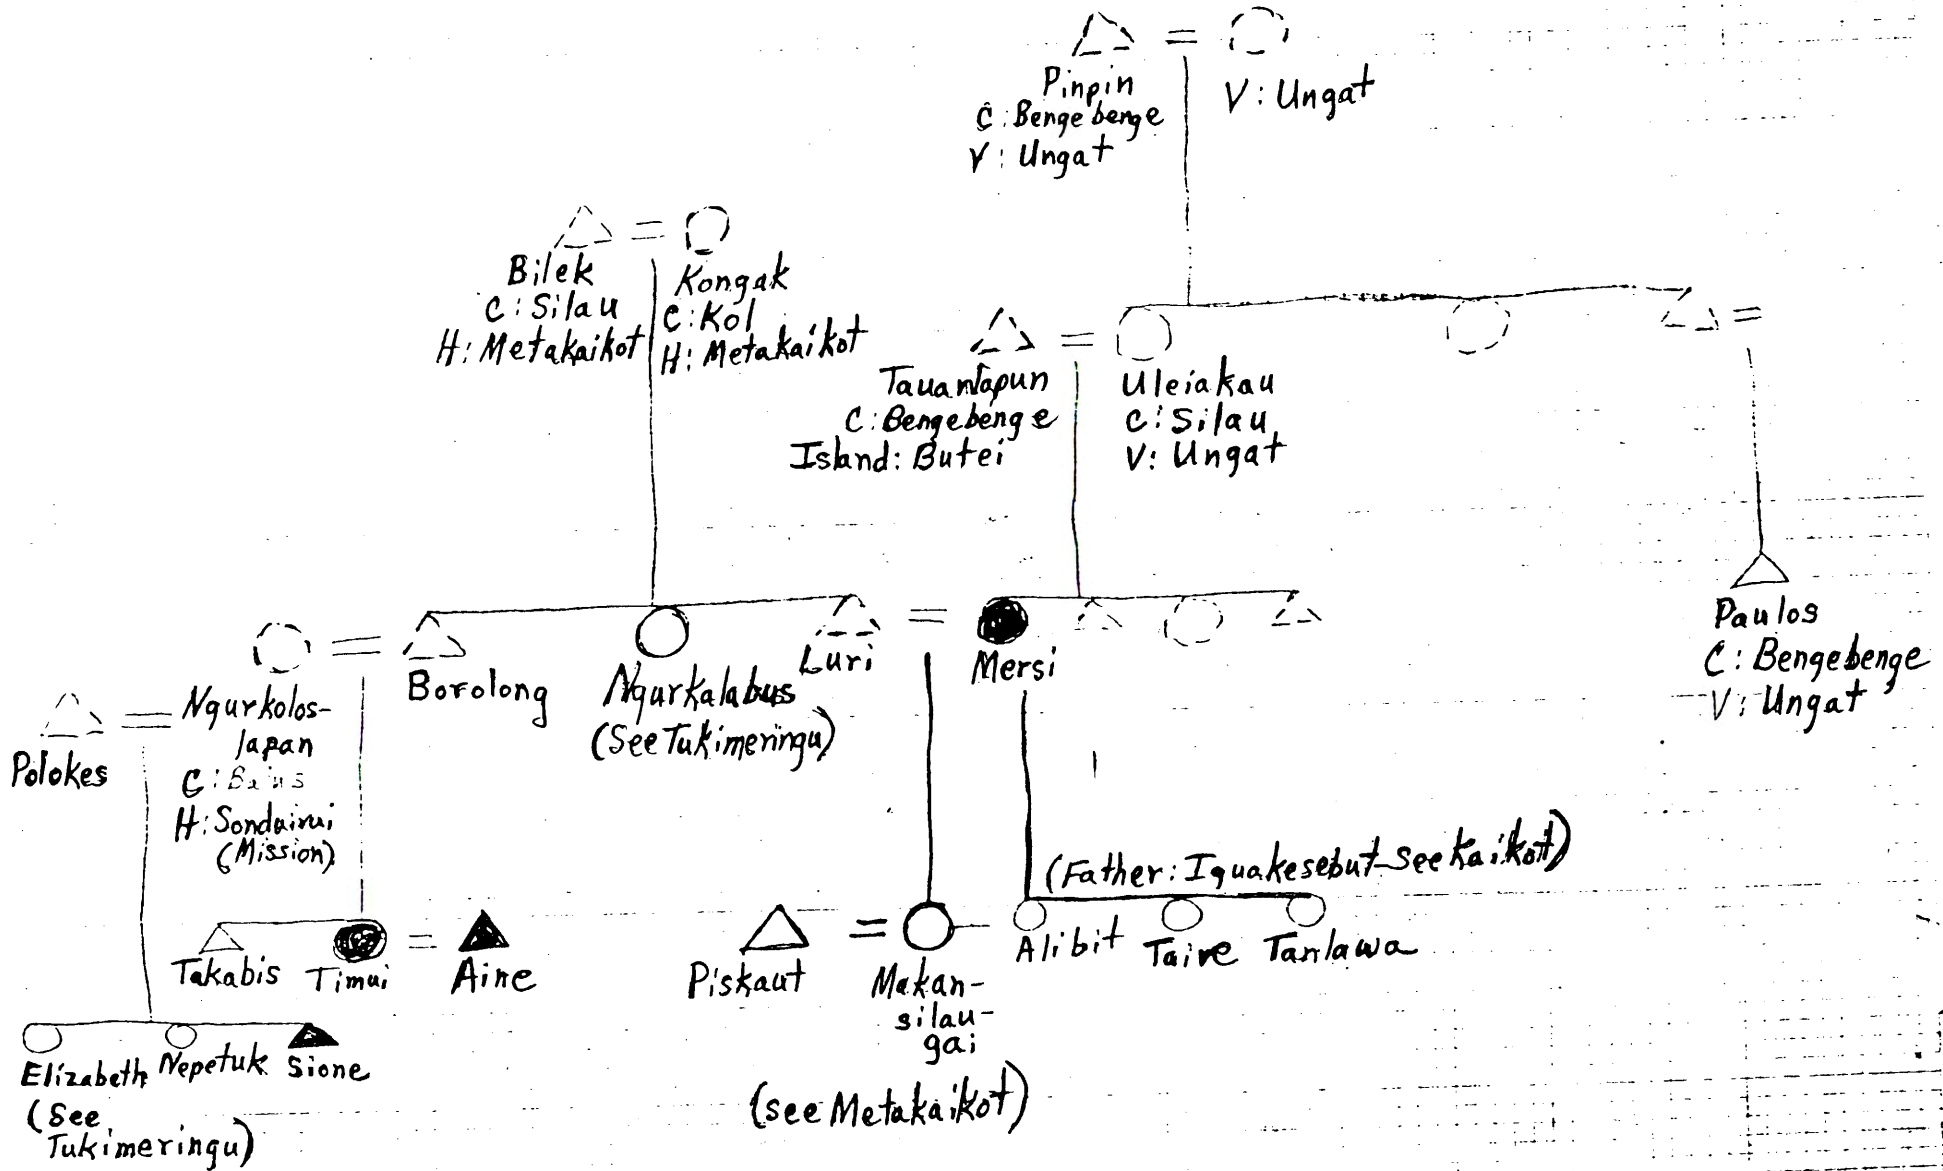 Pinpin
C: Bengebenge
V: Ungat
V: Ungat
Bilek
C: Silau
H: Metakaikot
Kongak
C: Kol
H: Metakaikot
Tauantapun
C: Bengebenge
Island: Butei
Uleiakau
C: Silau
V: Ungat
Paulos
C: Bengebenge
V: Ungat
Polokes
Ngurkolos-
Japan
C:
H: Sondairui
(Mission)
Borolong
Ngurkalabus
(See Tukimeringu)
Luri
Mersi
(Father: Iguakesebut-See Kaikot)
Takabis
Timui
Aine
Piskaut
Makan-
silau-
gai
(see Metakaikot)
Alibit
Taire
Tanlawa
Elizabeth
(See
Tukimeringu)
Nepetuk
Sione